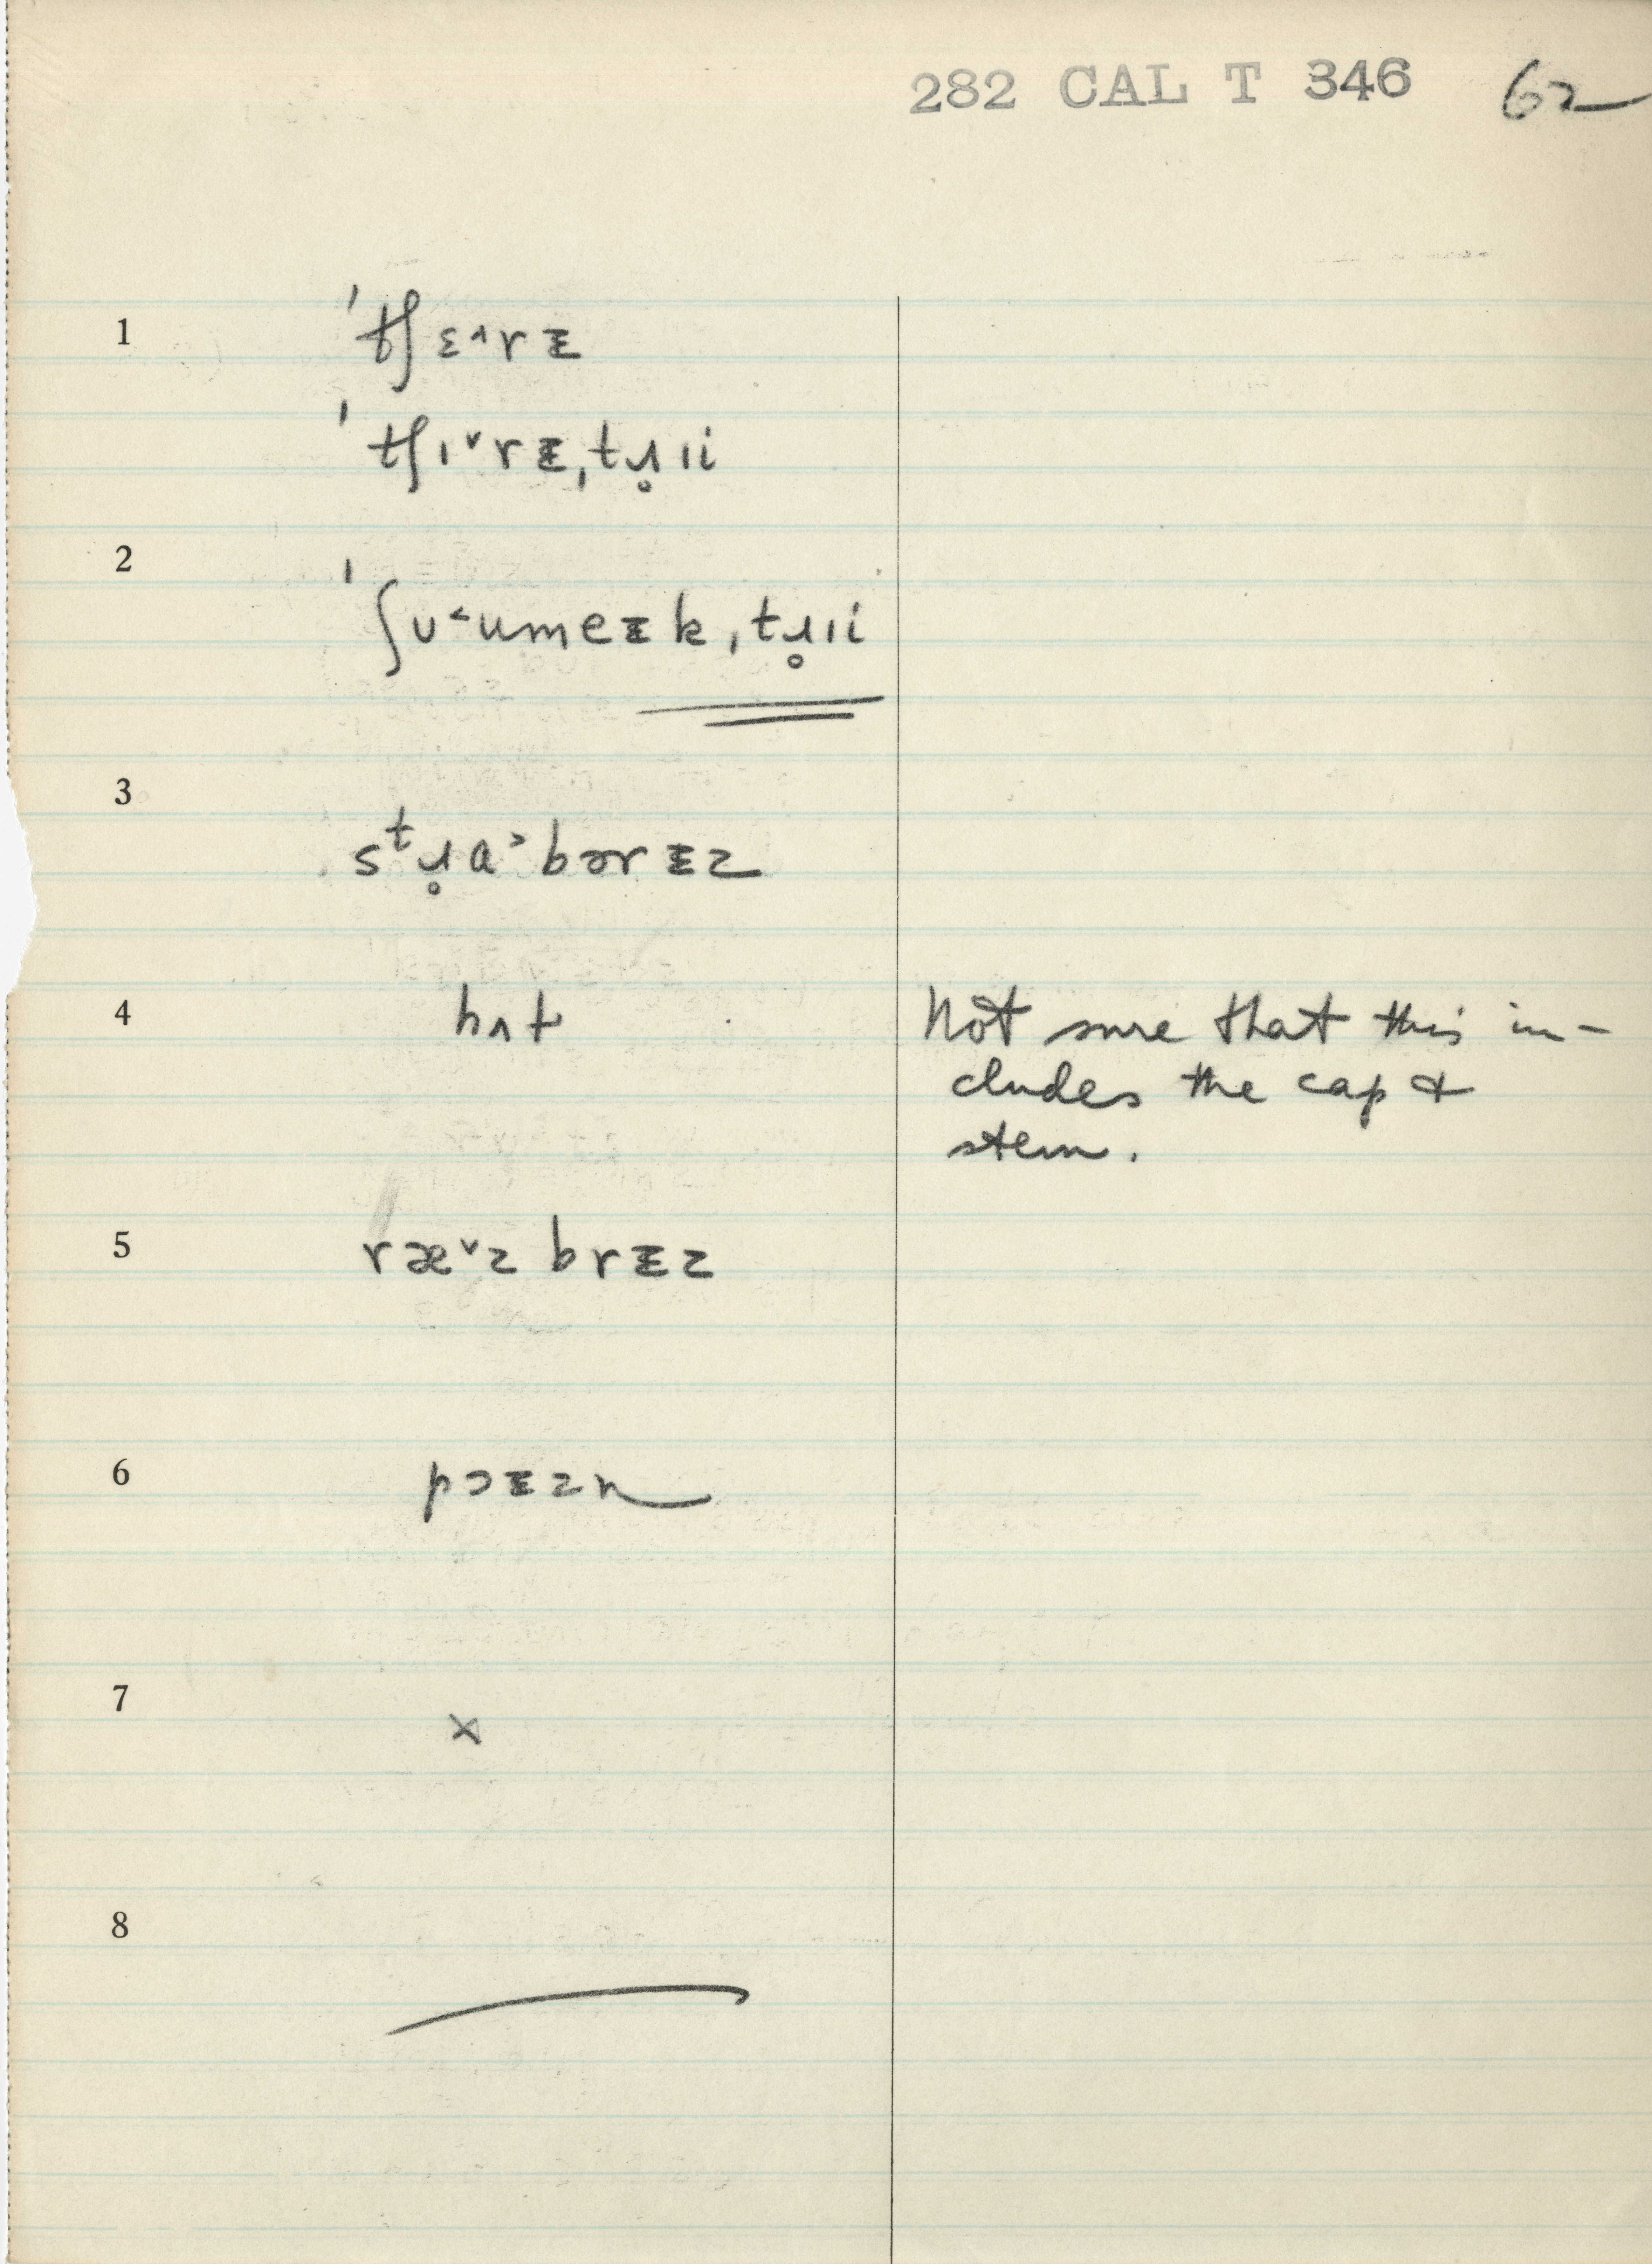 282 CAL T 346 62
1 ˈtʃɛ˄rᵻ
ˈtʃɪ˅rᵻˌtɹ̥ɪi
2 ˈʃʊ˂umeᵻkˌtɹ̥ɪi
3 sᵗɹ̥ɑ˃bərᵻz
4 hʌt Not sure that this in-
cludes the cap &
stem.
5 ræ˅zbrᵻz
6 pɔᵻzn
7 ×
8